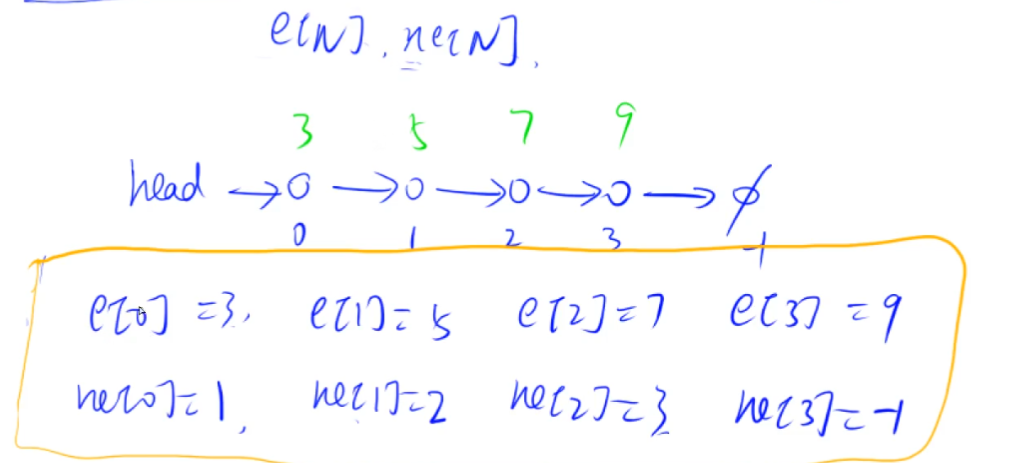 e[N], ne[N].
3 5 7 9
head → o → o → o → o → ∅
0 1 2 3 -1
e[0] =3, e[1]= 5 e[2]=7 e[3] = 9
ne[0]=1, ne[1]=2 ne[2]=3 ne[3]=-1